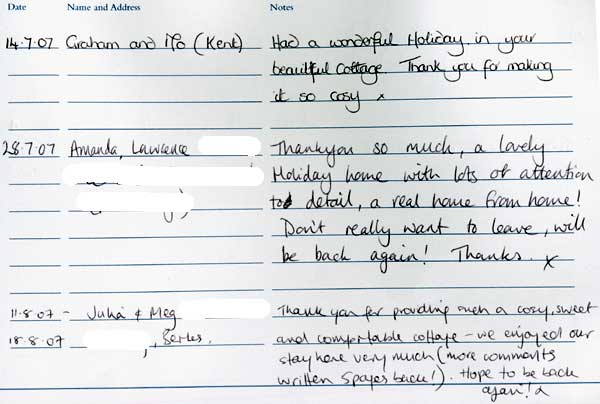 Date Name and Address Notes
14.7.07 Graham and Mo (Kent) Had a wonderful Holiday in your
beautiful cottage. Thank you for making
it so cosy x
28.7.07 Amanda, Lawrence Thankyou so much, a lovely
Holiday home with lots of attention
to detail, a real home from home!
Don't really want to leave, will
be back again! Thanks. x
11.8.07 - Julia & Meg Thank you for providing such a cosy, sweet
18.8.07 , Berks. and comfortable cottage - we enjoyed our
stay here very much (more comments
written 5 pages back!). Hope to be back
again!